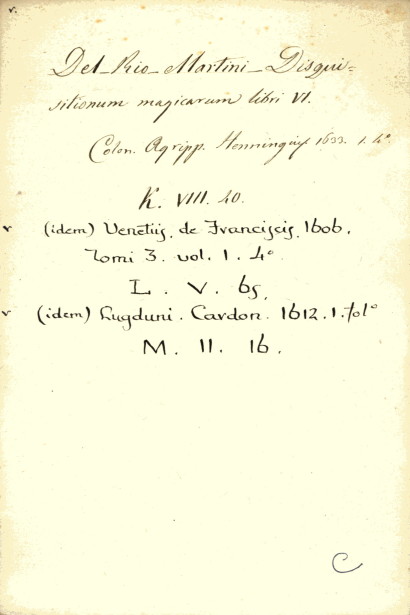 v.
Del Rio Martini Disqui-
sitionum magicarum libri VI.
Colon. Agripp. Henningius 1633. 1. 4°
K. VIII. 40.
v (idem) Venetiis, de Franciscis, 1606.
Tomi 3. vol. 1. 4°
L. V. 65,
v (idem) Lugduni. Cardon. 1612. 1. fol°
M. II. 16.
C